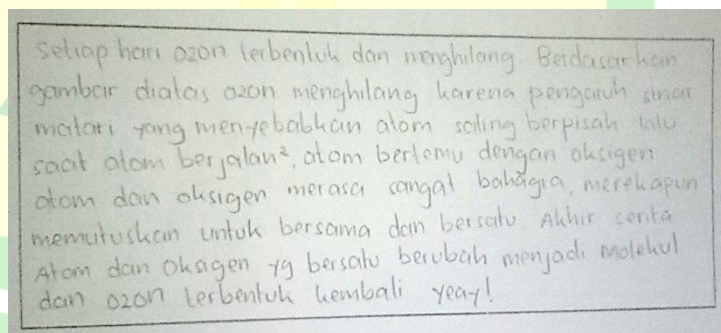 Setiap hari ozon terbentuk dan menghilang. Berdasarkan
gambar diatas ozon menghilang karena pengaruh sinar
matari yang menyebabkan atom saling berpisah lalu
saat atom berjalan², atom bertemu dengan oksigen
atom dan oksigen merasa sangat bahagia, merekapun
memutuskan untuk bersama dan bersatu. Akhir cerita
Atom dan Oksigen yg bersatu berubah menjadi molekul
dan ozon terbentuk kembali yeay!